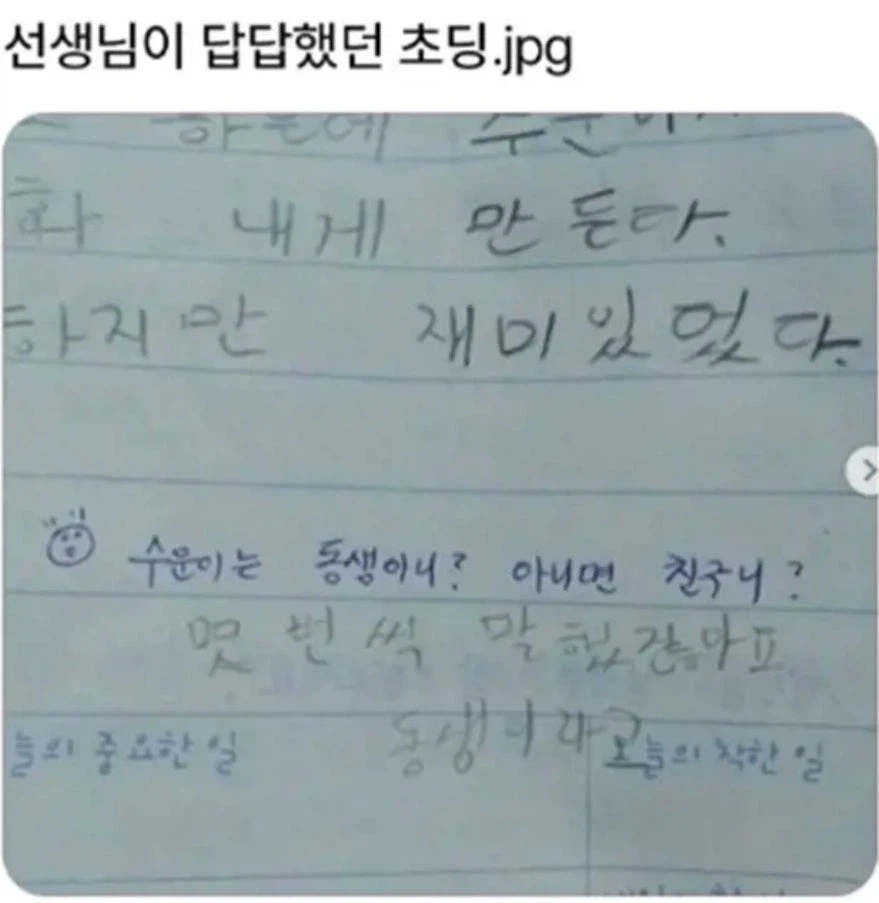 선생님이 답답했던 초딩.jpg
하는데 수운이
화 내게 만든다.
하지만 재미있었다.
수운이는 동생이니? 아니면 친구니?
몇 번씩 말했잖아요
동생이라고
늘의 중요한 일 오늘의 착한 일